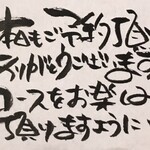 本日もご予約頂
ありがとうございます
コースをお楽しみ
頂けますように